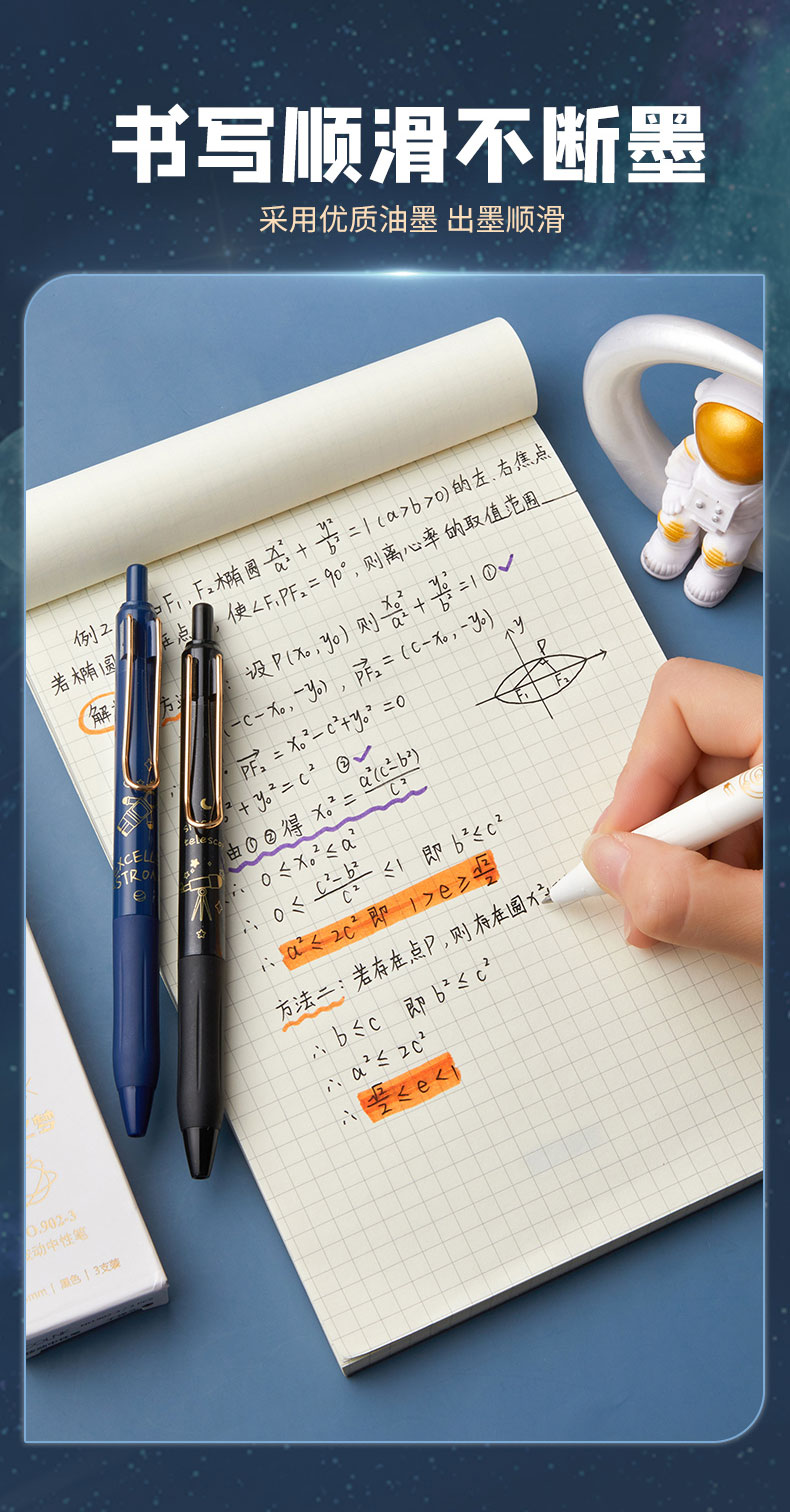 书写顺滑不断墨
采用优质油墨 出墨顺滑
例2 F₁, F₂椭圆 x²/a² + y²/b² = 1 (a>b>0) 的左、右焦点
若椭圆 在点 , 使∠F₁PF₂ = 90°, 则离心率的取值范围
解 方法 : 设P(x₀, y₀) 则 x₀²/a² + y₀²/b² = 1 ①
(-c-x₀, -y₀), PF₂ = (c-x₀, -y₀)
∴ · PF₂ = x₀²-c²+y₀² = 0
² + y₀² = c² ②
由①②得 x₀² = a²(c²-b²)/c²
∴ 0 ≤ x₀² ≤ a²
∴ 0 ≤ c²-b²/c² ≤ 1 即 b² ≤ c²
∴ a² ≤ 2c² 即 1 > e ≥ √2/2
方法二: 若存在点P, 则存在圆x²
∴ b ≤ c 即 b² ≤ c²
∴ a² ≤ 2c²
∴ √2/2 ≤ e < 1
y
P
F₁ F₂
telesco
G.902-3
动中性笔
mm | 黑色 | 3支装